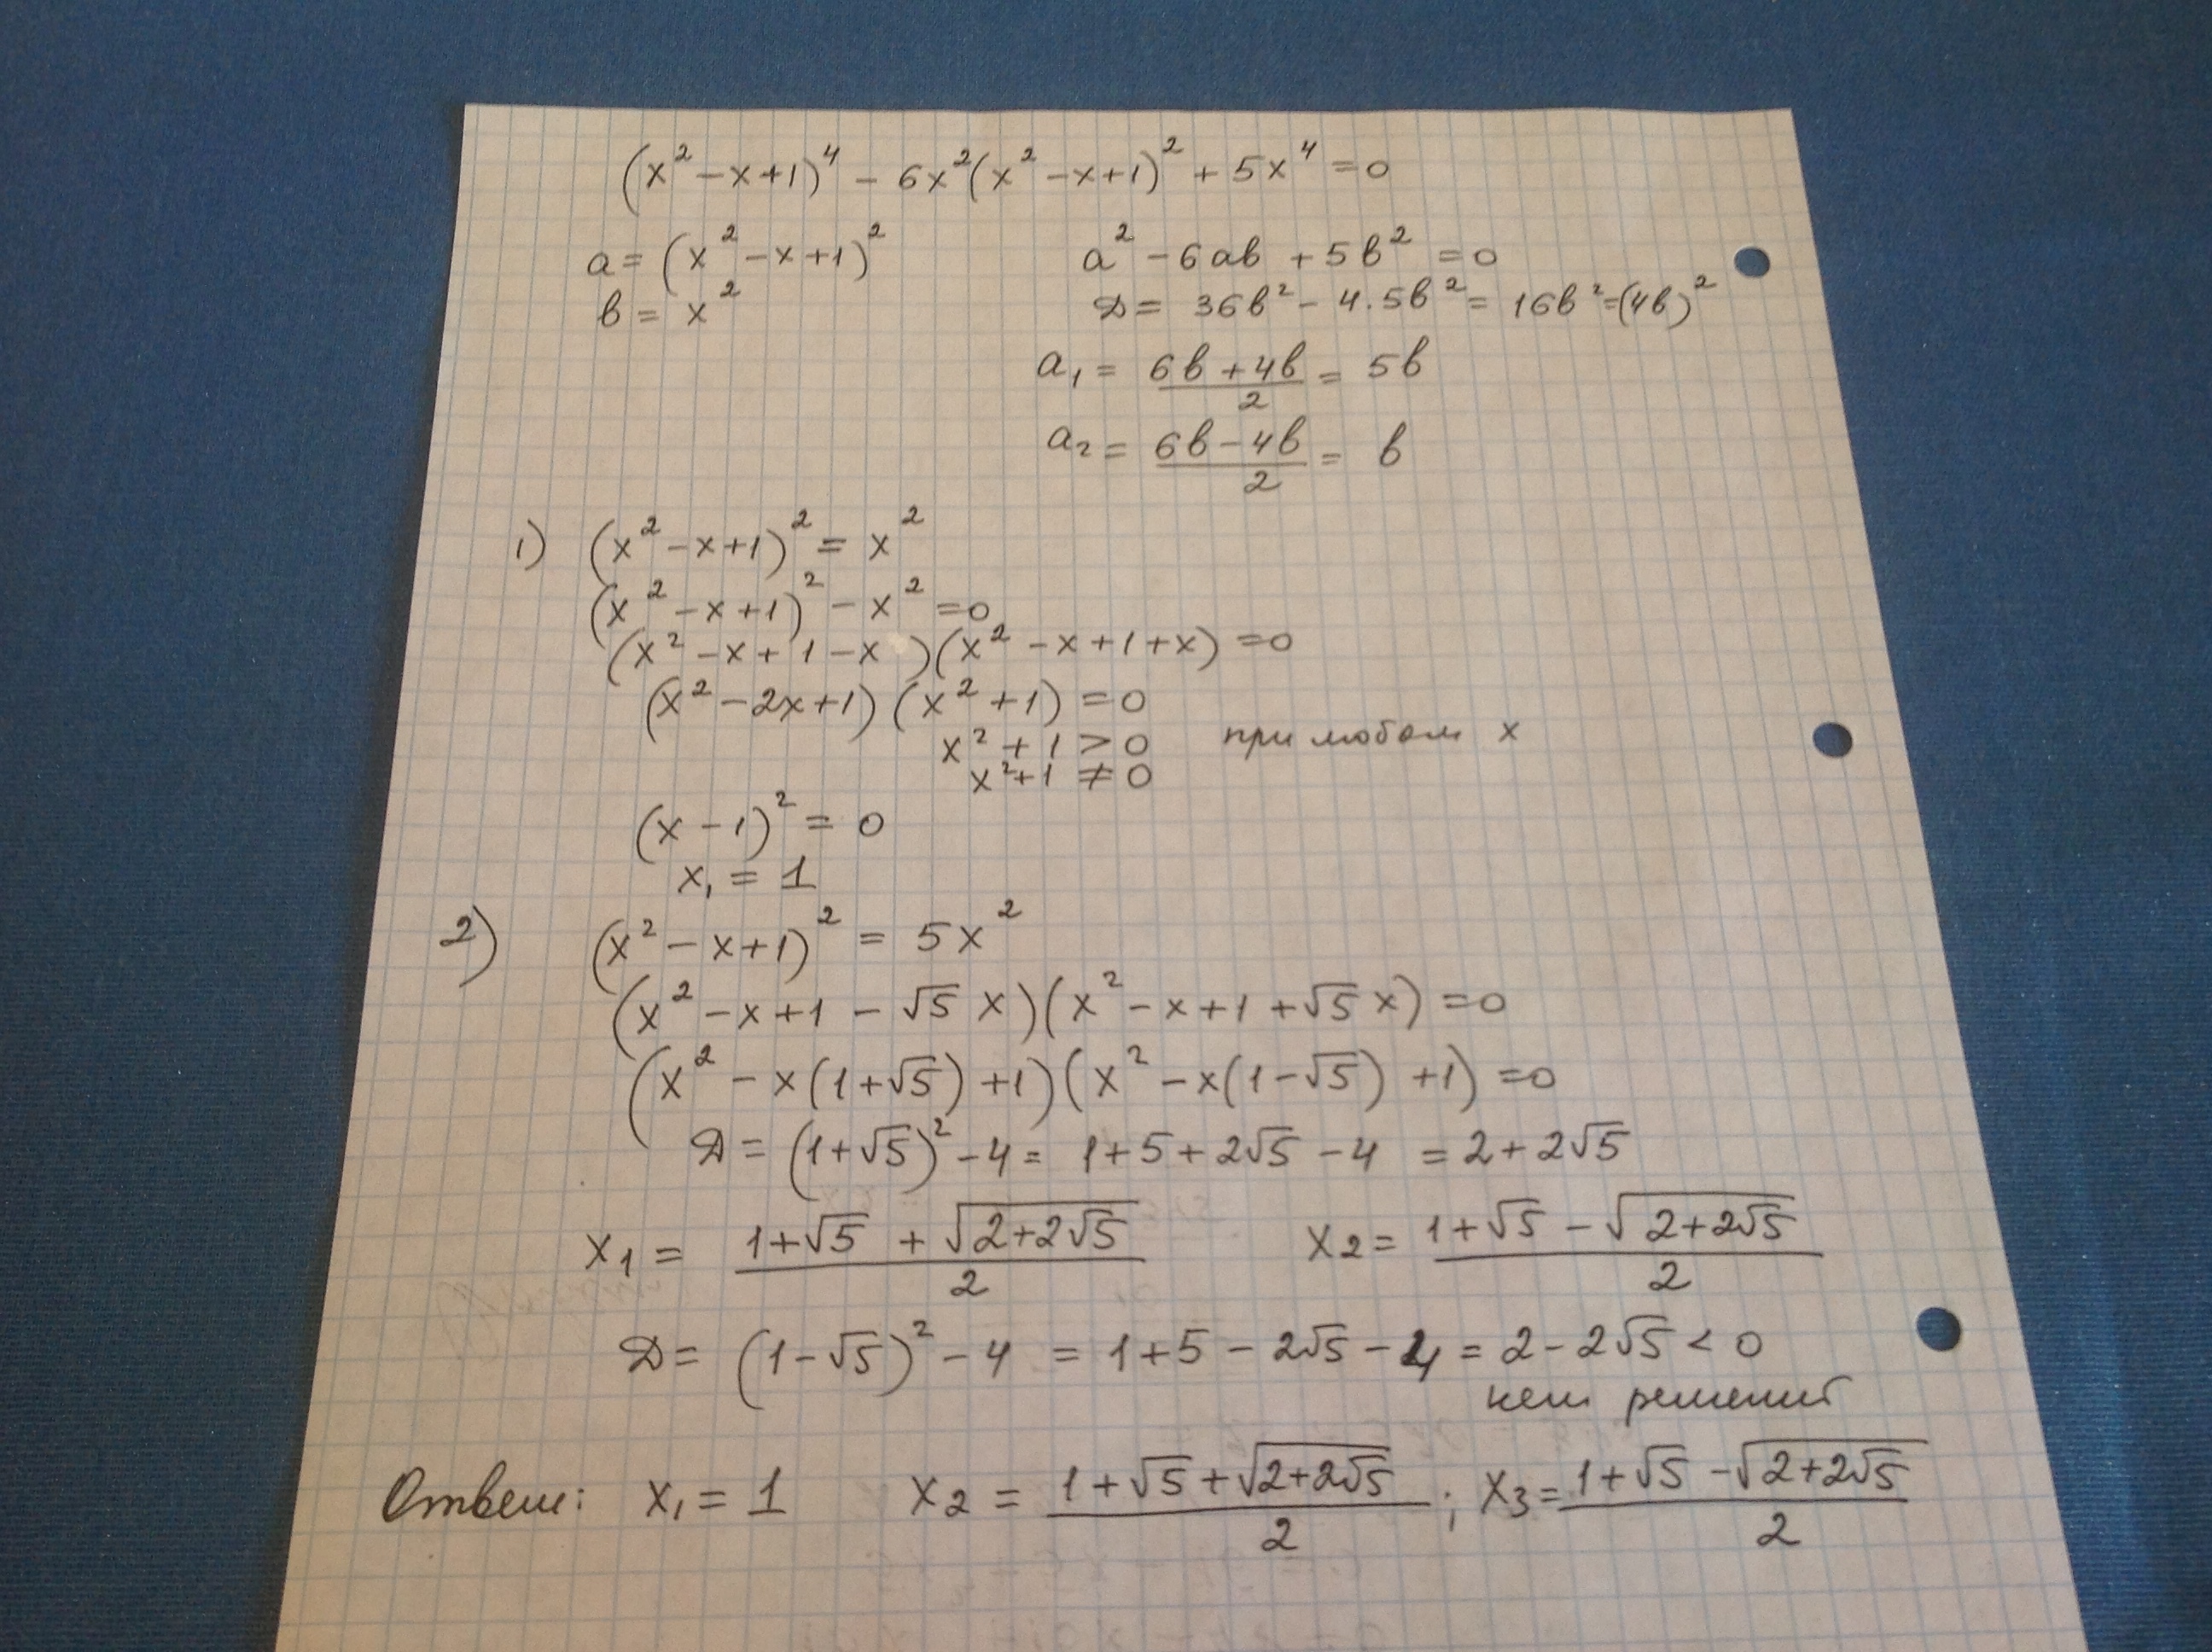 (x² − x + 1)⁴ − 6x²(x² − x + 1)² + 5x⁴ = 0
a = (x² − x + 1)²
b = x²
a² − 6ab + 5b² = 0
D = 36b² − 4·5b² = 16b² = (4b)²
a₁ = (6b + 4b)/2 = 5b
a₂ = (6b − 4b)/2 = b
1) (x² − x + 1)² = x²
(x² − x + 1)² − x² = 0
(x² − x + 1 − x)(x² − x + 1 + x) = 0
(x² − 2x + 1)(x² + 1) = 0
x² + 1 > 0 при любом x
x² + 1 ≠ 0
(x − 1)² = 0
x₁ = 1
2) (x² − x + 1)² = 5x²
(x² − x + 1 − √5 x)(x² − x + 1 + √5 x) = 0
(x² − x(1 + √5) + 1)(x² − x(1 − √5) + 1) = 0
D = (1 + √5)² − 4 = 1 + 5 + 2√5 − 4 = 2 + 2√5
x₁ = (1 + √5 + √(2 + 2√5))/2 x₂ = (1 + √5 − √(2 + 2√5))/2
D = (1 − √5)² − 4 = 1 + 5 − 2√5 − 4 = 2 − 2√5 < 0
нет решений
Ответ: x₁ = 1 x₂ = (1 + √5 + √(2 + 2√5))/2 ; x₃ = (1 + √5 − √(2 + 2√5))/2